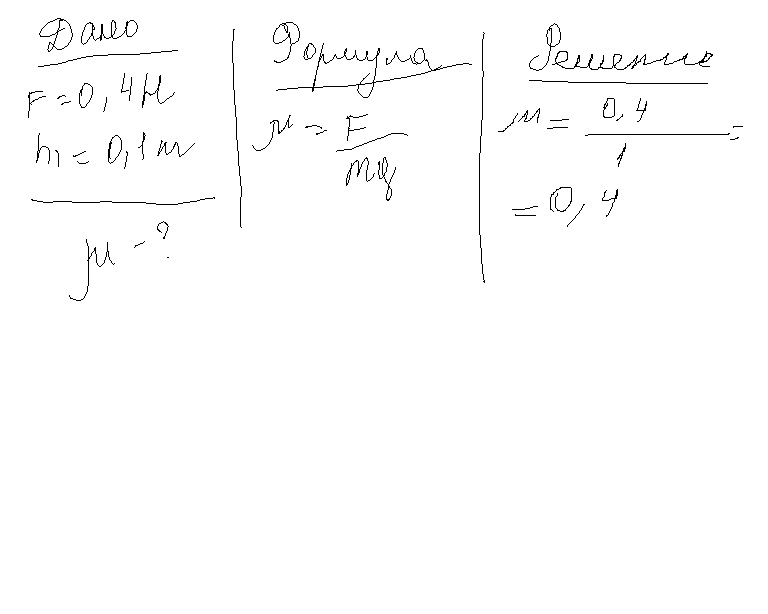 Дано
F = 0,4 Н
m = 0,1 кг
μ - ?
Формула
μ = F
mg
Решение
μ = 0,4 =
1
= 0,4